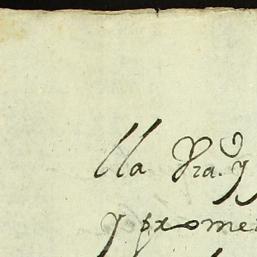 lla Vra. y
y prome